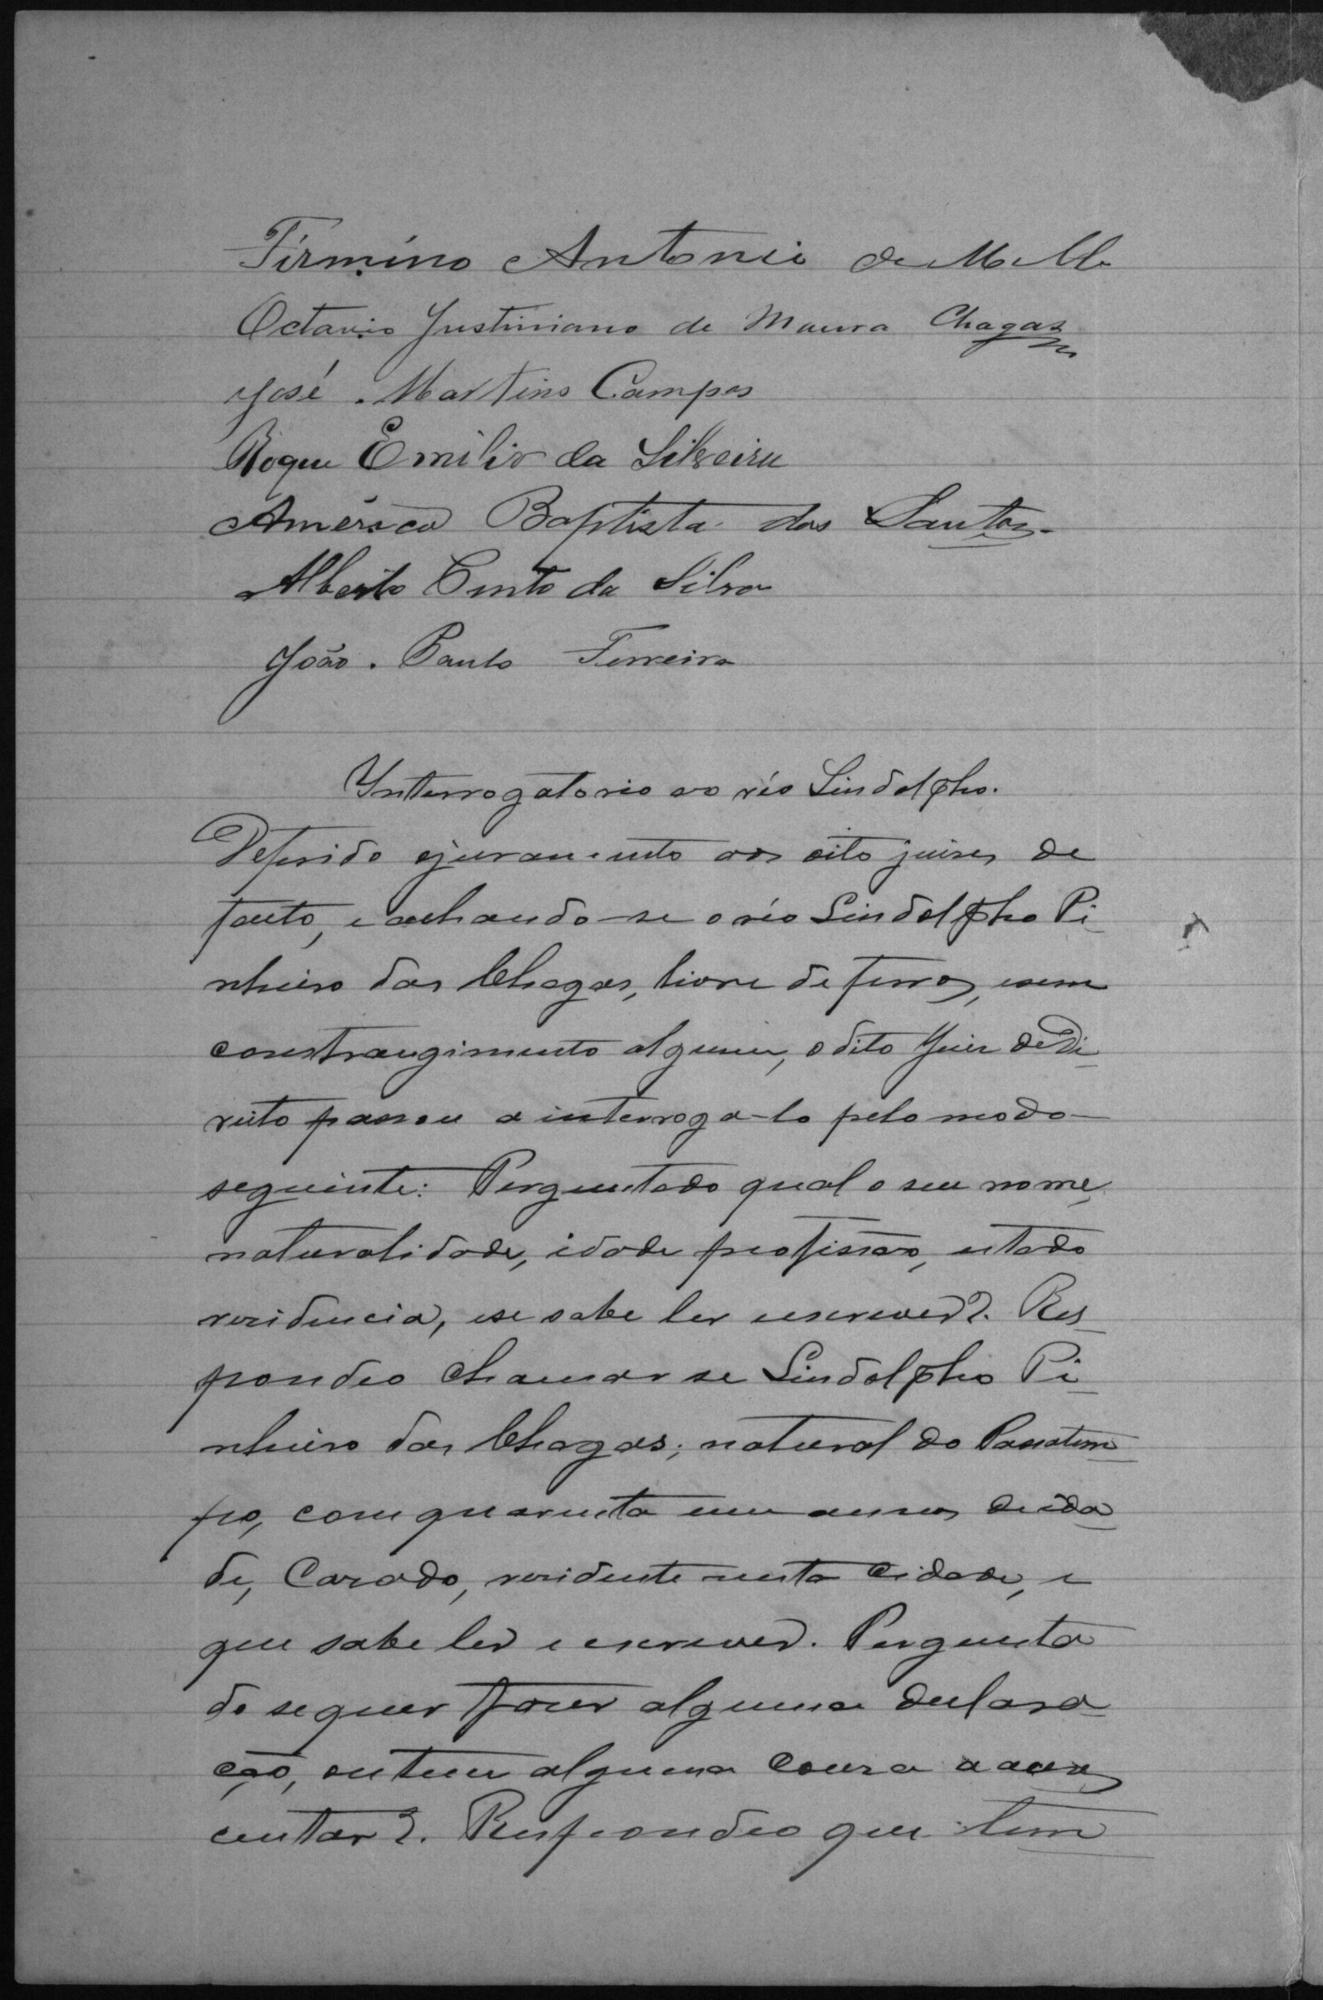 Firmino Antonio de Mello
Octavio Justiniano de Moura Chagas
José Martins Campos
Roque Emilio da Silveira
Americo Baptista dos Santos
Alberto Pinto da Silva
João Paulo Ferreira
Interrogatorio ao réo Lindolpho.
Deferido ojuramento aos oito juises de
facto, e achando-se o réo Lindolpho Pi
nheiro das Chagas, livre de ferros, esem
constrangimento algum, o dito Juiz de Di
reito passou a interroga-lo pelo modo
seguinte: Perguntado qual o seu nome,
naturalidade, idade profissão, estado
residencia, ese sabe ler eescrever?. Res
pondeo chamar se Lindolpho Pi
nheiro das Chagas; natural do Passatem
po, com quarenta um annos deida
de, Casado, residente nesta Cidade, e
que sabe ler e escrever. Pergunta
do sequer fazer alguma declara
ção, outem alguma cousa a acres
centar?. Respondeo que tem